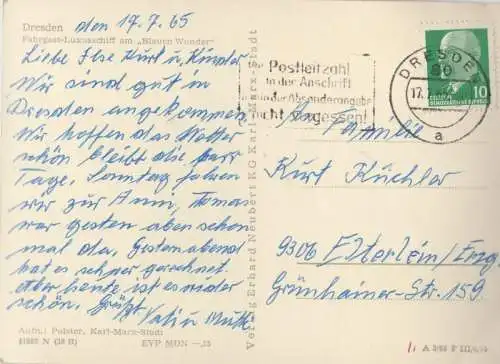 Dresden den 17.7.65
Fahrgast-Luxusschiff am „Blauen Wunder"
Liebe Ilse Kurt u. Kinder
Wir sind gut in
Dresden angekommen
Wir hoffen das Wetter
schön bleibt die paar
Tage. Sonntag fahren
wir zur Anni, Tomas
war gestern aber schon
mal da. Gestern abend
hat es schwer geregnet.
Aber heute ist es wieder
schön. Grüßt
Vati u Mutti
Aufn.: Polster, Karl-Marx-Stadt
EVP MDN —,25
Verlag Erhard Neubert KG Karl-Marx-Stadt
Postleitzahl
in der Anschrift
und der Absenderangabe
nicht vergessen!
DRESDEN
17.
a
10
Familie
Kurt Küchler
9306 Elterlein/Erzg
Grünhainer-Str. 159.